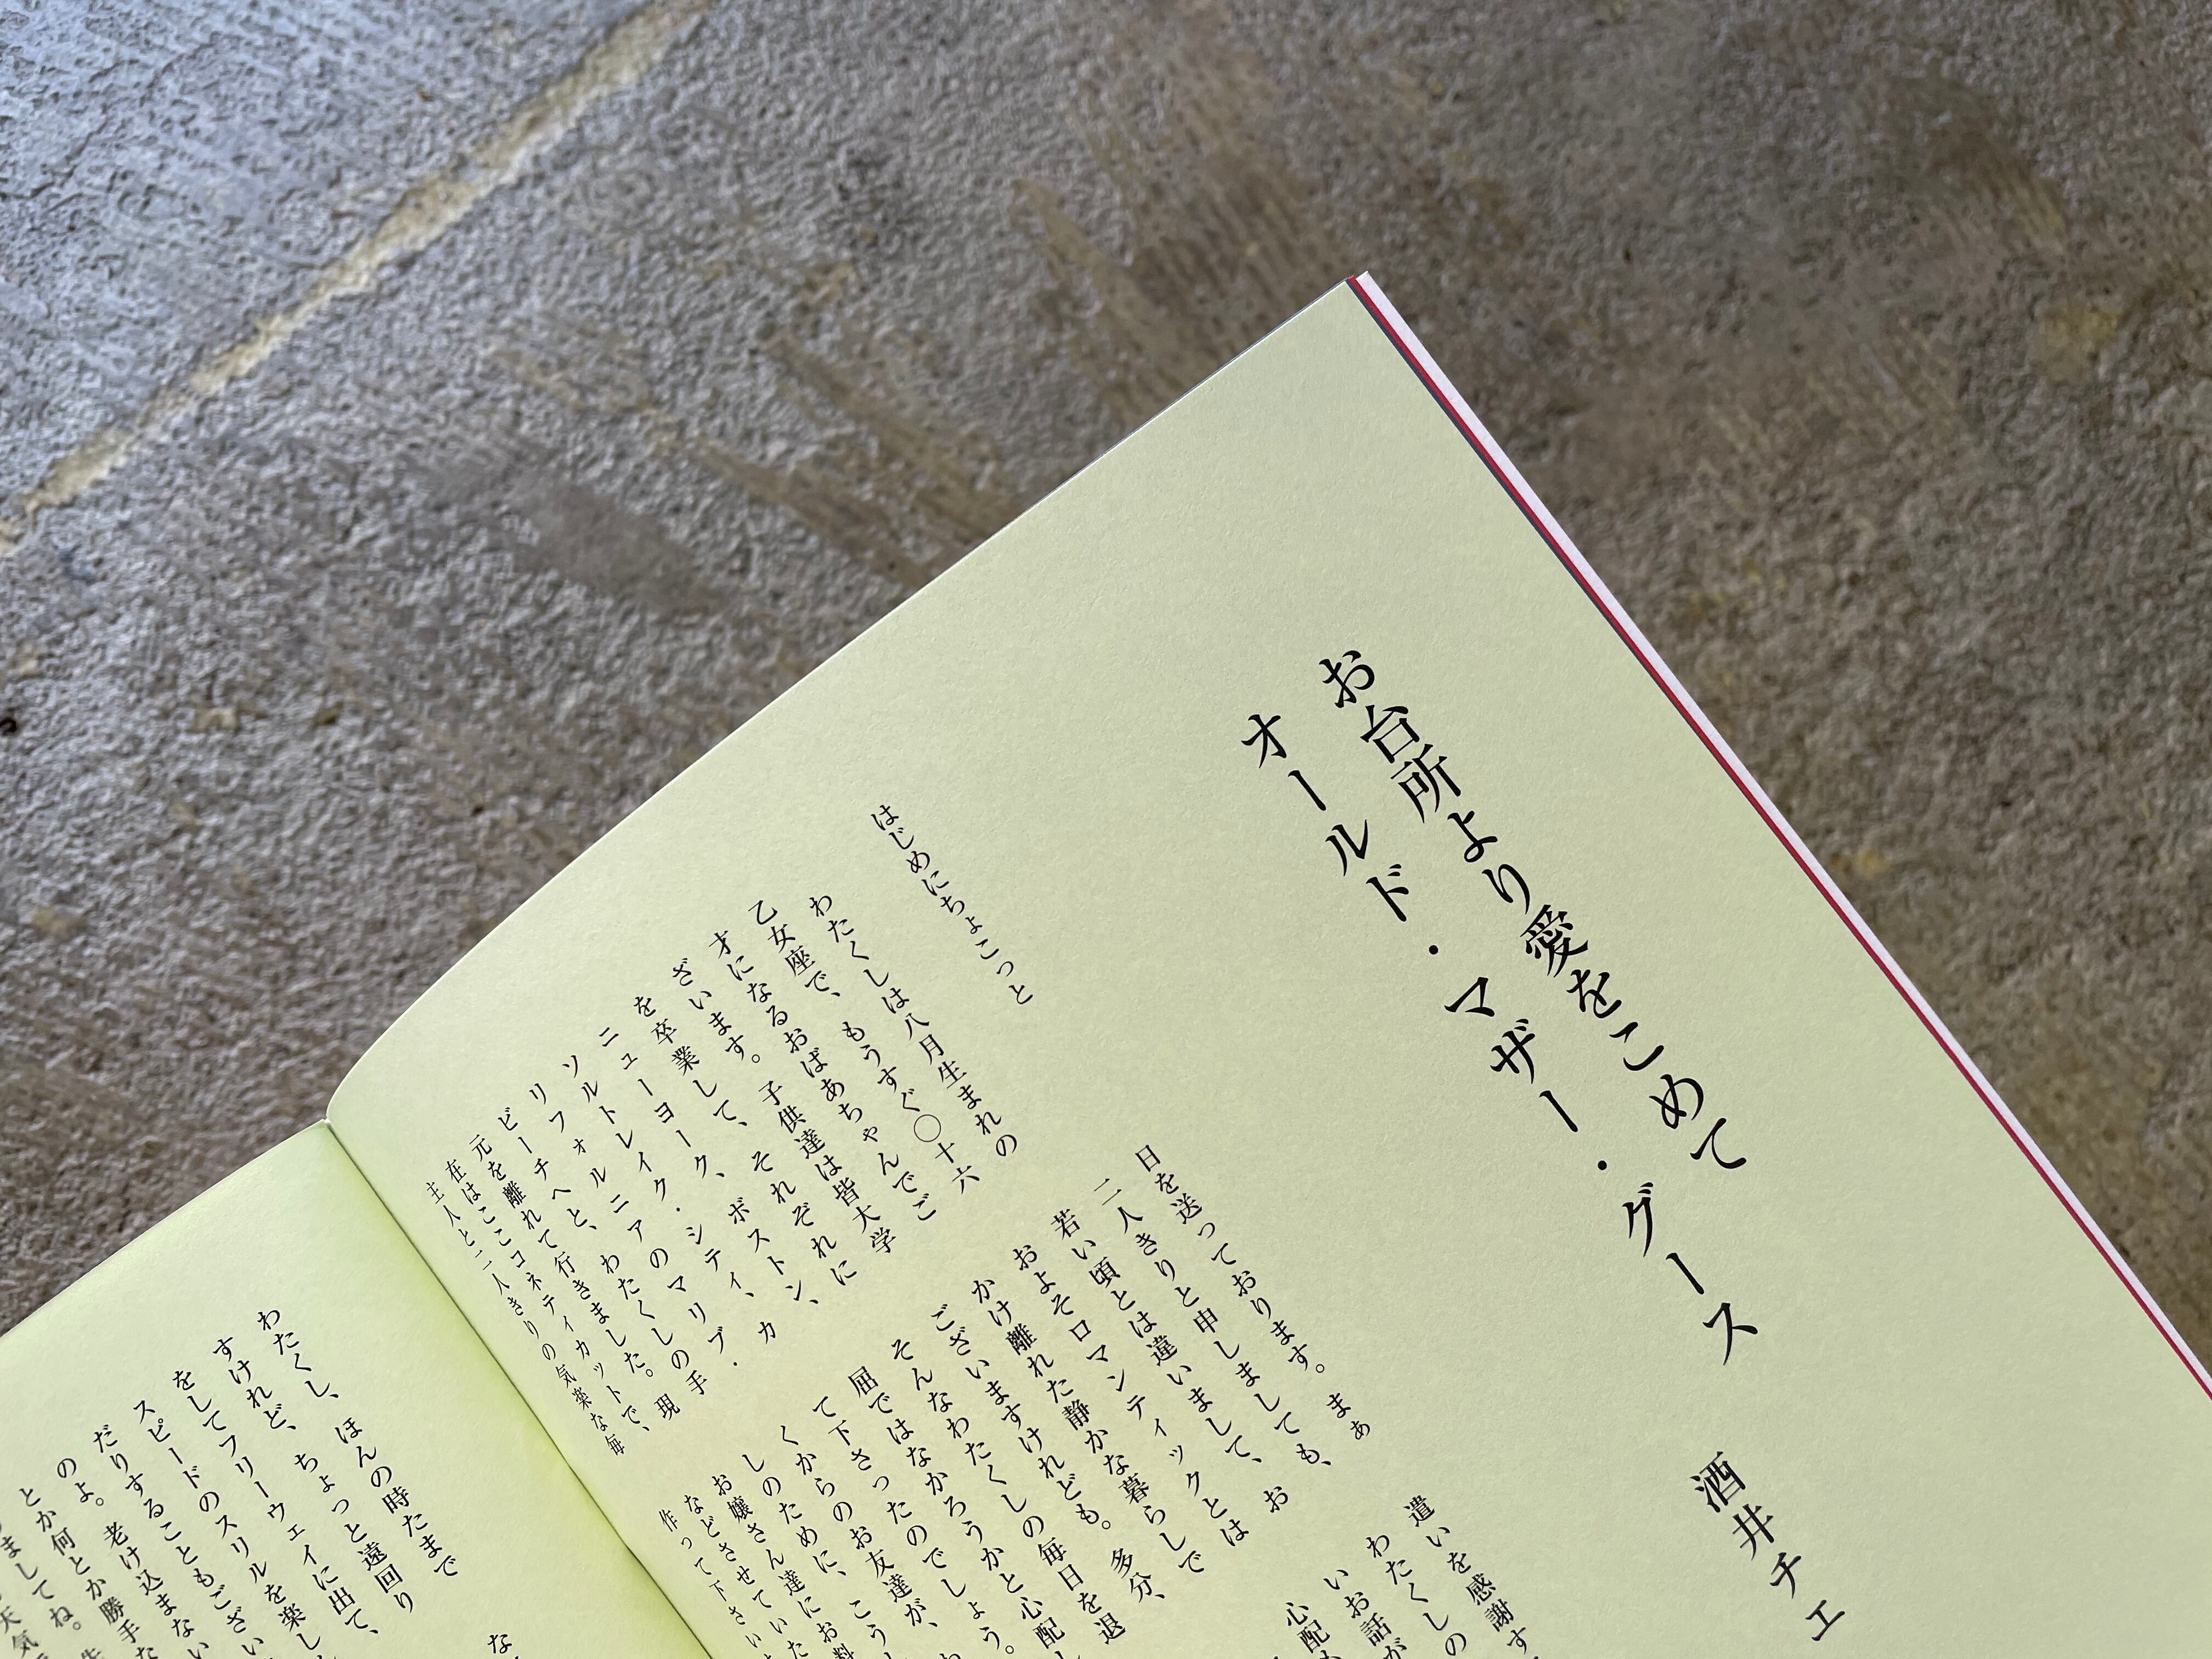 お台所より愛をこめて
オールド・マザー・グース
酒井チエ
はじめにちょこっと
わたくしは八月生まれの
乙女座で、もうすぐ◯十六
才になるおばあちゃんでご
ざいます。子供達は皆大学
を卒業して、それぞれに
ニューヨーク、ボストン、カ
ソルトレイク・シティ、
リフォルニアのマリブ・
ビーチへと、わたくしの手
元を離れて行きました。現
在はここコネティカットで、
主人と二人きりの気楽な毎
日を送っております。まぁ
二人きりと申しましても、お
若い頃とは違いまして、
およそロマンティックとは
かけ離れた静かな暮らしで
ございますけれども。多分、
そんなわたくしの毎日を退
屈ではなかろうかと心配し
て下さったのでしょう。
くからのお友達が、
しのために、こうし
お嬢さん達にお料
などさせていた
作って下さい
遣いを感謝す
わたくしの
いお話が
心配
わたくし、ほんの時たまで
すけれど、ちょっと遠回り
をしてフリーウェイに出て、
スピードのスリルを楽し
だりすることもござい
のよ。老け込まない
とか何とか勝手な
ましてね。
天気
な